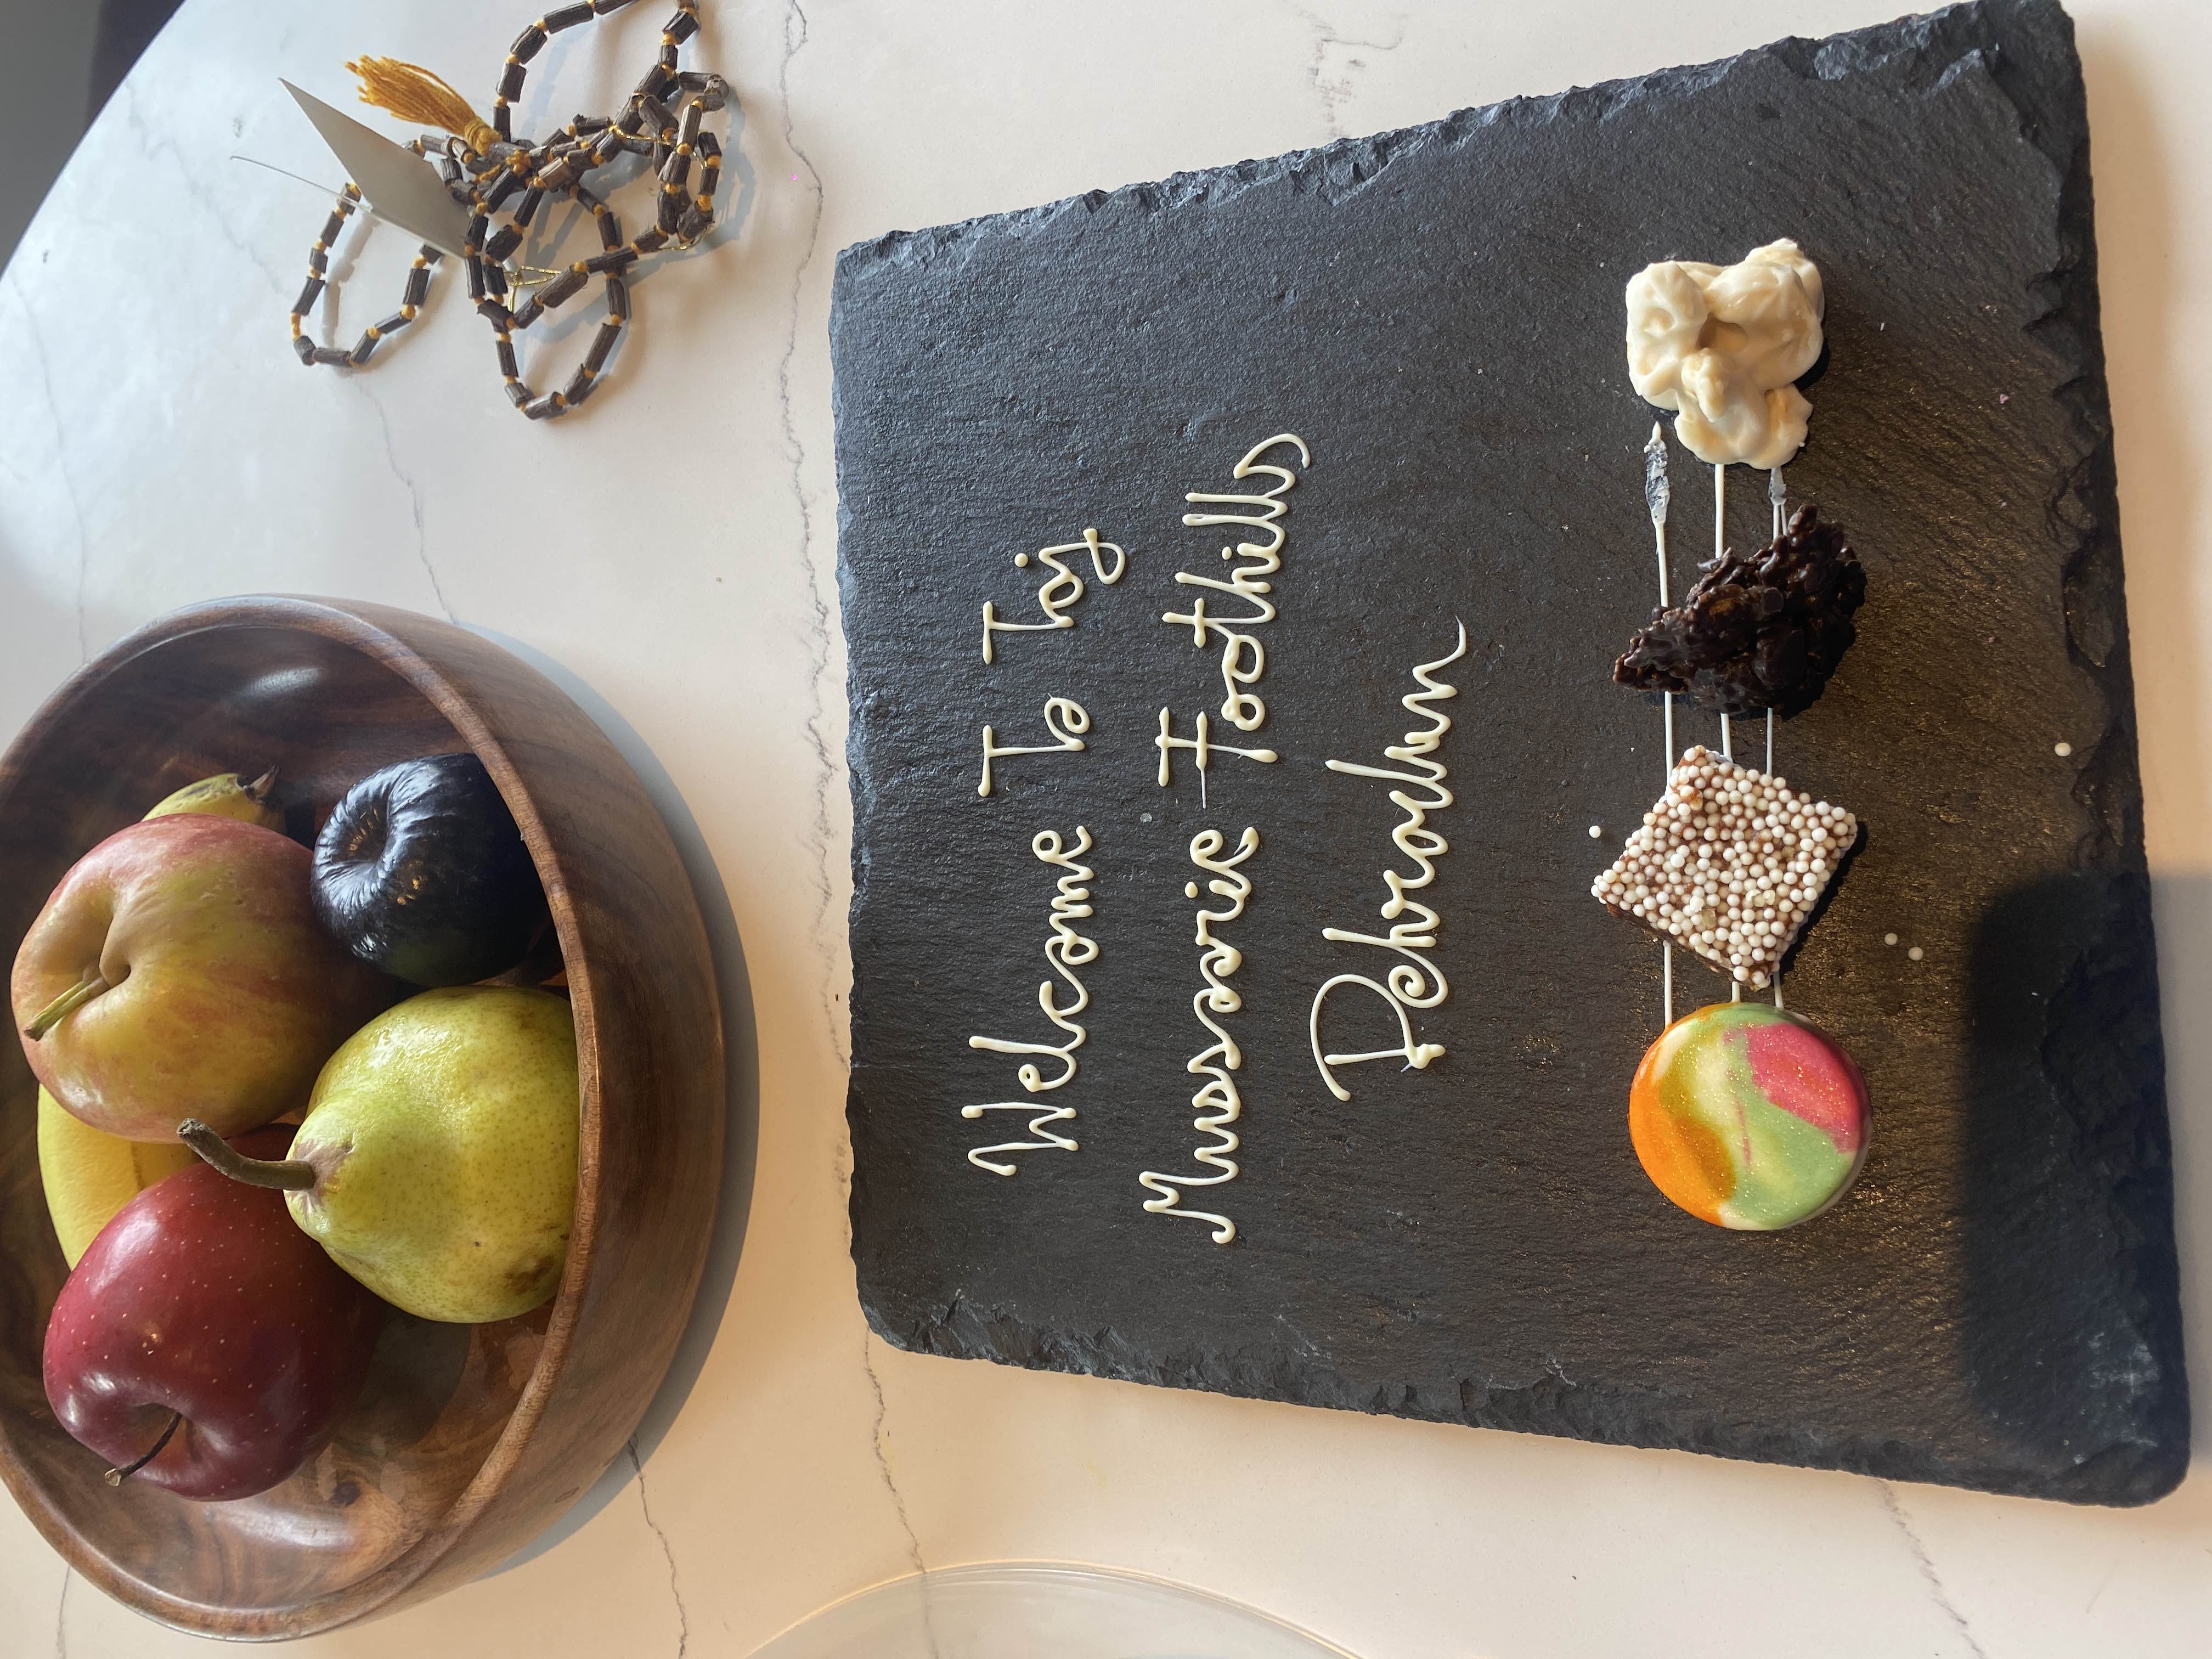 Welcome To Taj
Mussorie Foothills
Dehradun